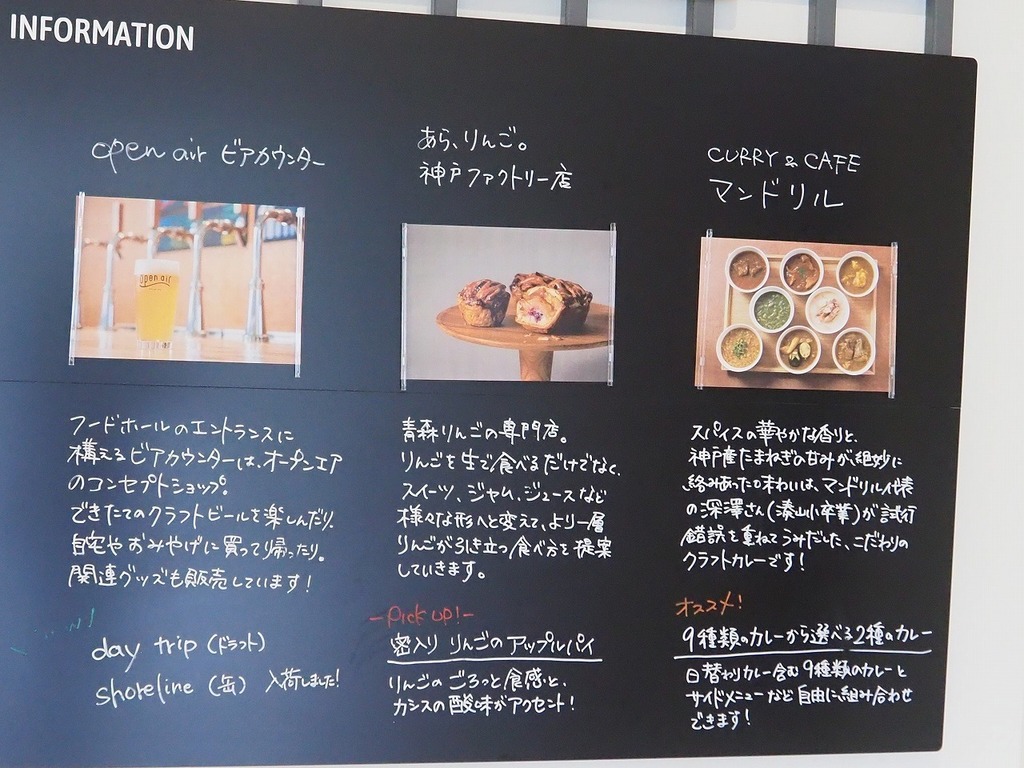 INFORMATION
open air ビアカウンター
open air
フードホールのエントランスに
構えるビアカウンターは、オープンエア
のコンセプトショップ。
できたてのクラフトビールを楽しんだり、
自宅やおみやげに買って帰ったり。
関連グッズも販売しています!
day trip (ドラフト)
shoreline (缶) 入荷しました!
あら、りんご。
神戸ファクトリー店
青森りんごの専門店。
りんごを生で食べるだけでなく、
スイーツ、ジャム、ジュースなど
様々な形へと変えて、より一層
りんごが引き立つ食べ方を提案
していきます。
-Pick up!-
密入り りんごのアップルパイ
りんごのごろっと食感と、
カシスの酸味がアクセント!
CURRY & CAFE
マンドリル
スパイスの華やかな香りと、
神戸産たまねぎの甘みが、絶妙に
絡みあったの味わいは、マンドリル代表
の深澤さん(湊山小卒業)が試行
錯誤を重ねてうみだした、こだわりの
クラフトカレーです!
オススメ!
9種類のカレーから選べる2種のカレー
日替わりカレー含む9種類のカレーと
サイドメニューなど自由に組み合わせ
できます!